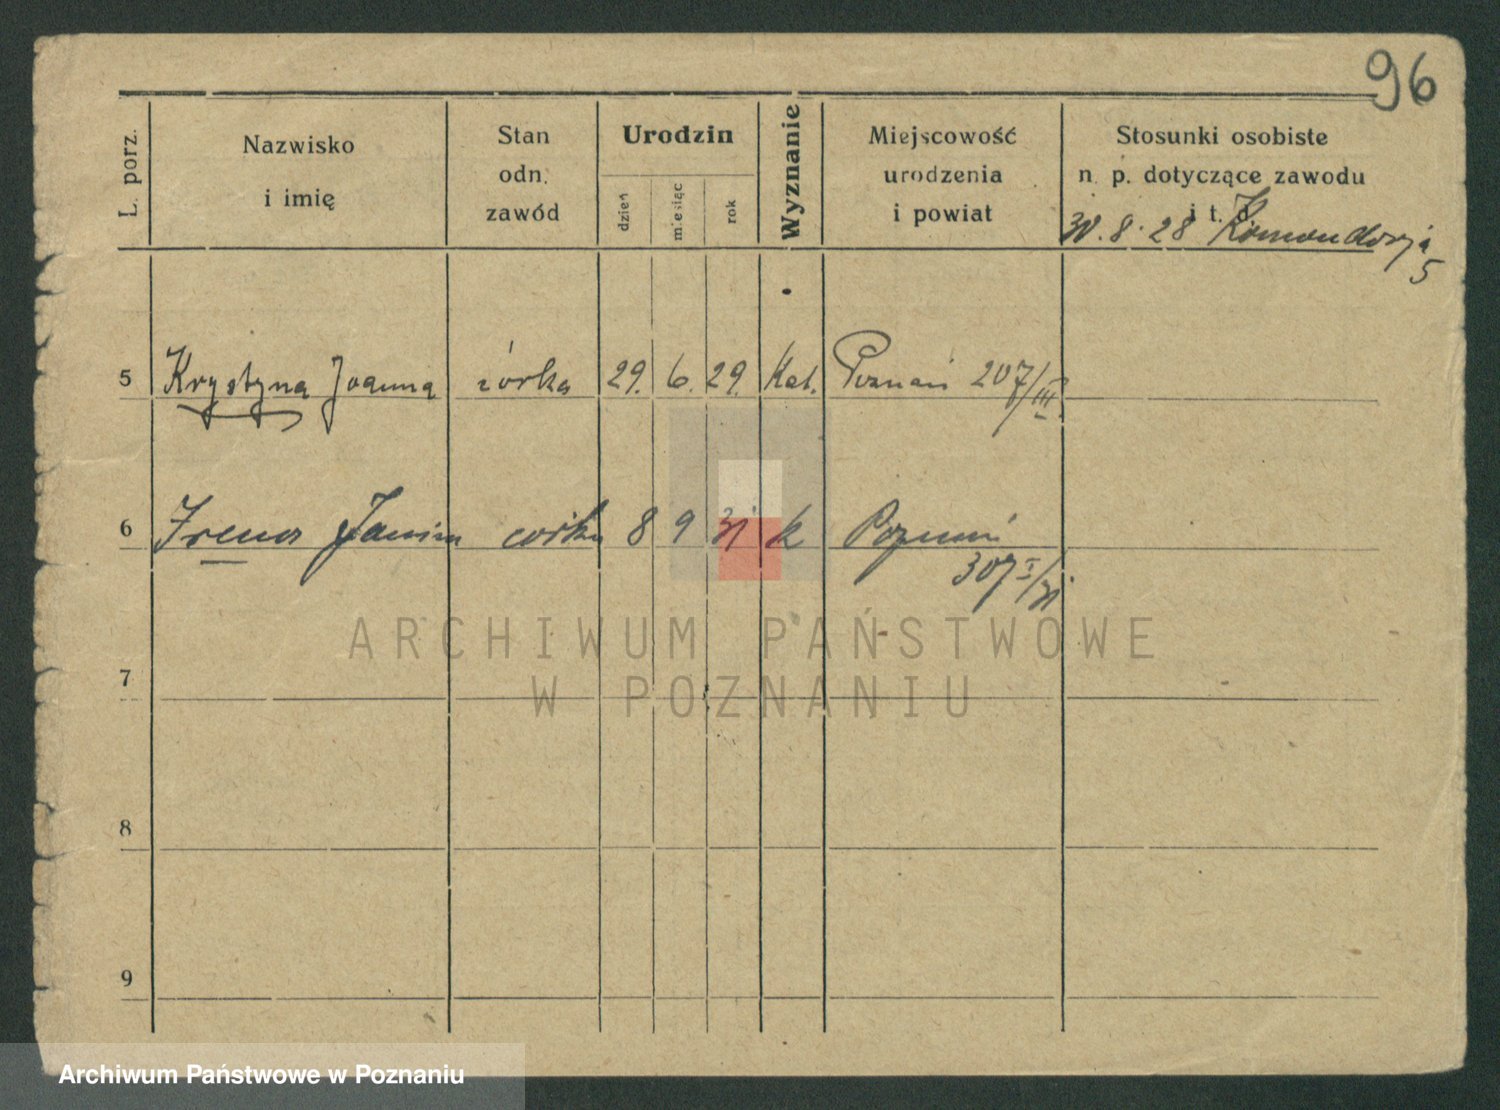 96
L. porz.
Nazwisko
i imię
Stan
odn.
zawód
Urodzin
dzień
miesiąc
rok
Wyznanie
Miejscowość
urodzenia
i powiat
Stosunki osobiste
n. p. dotyczące zawodu
i t. d.
30. 8. 28 Komandorja
5
5 Krystyna Joanna córka 29. 6. 29. Kat. Poznań 207/III
6 Irena Janina córka 8 9 31 k Poznań
307 I/31
ARCHIWUM PAŃSTWOWE
W POZNANIU
7
8
9
Archiwum Państwowe w Poznaniu